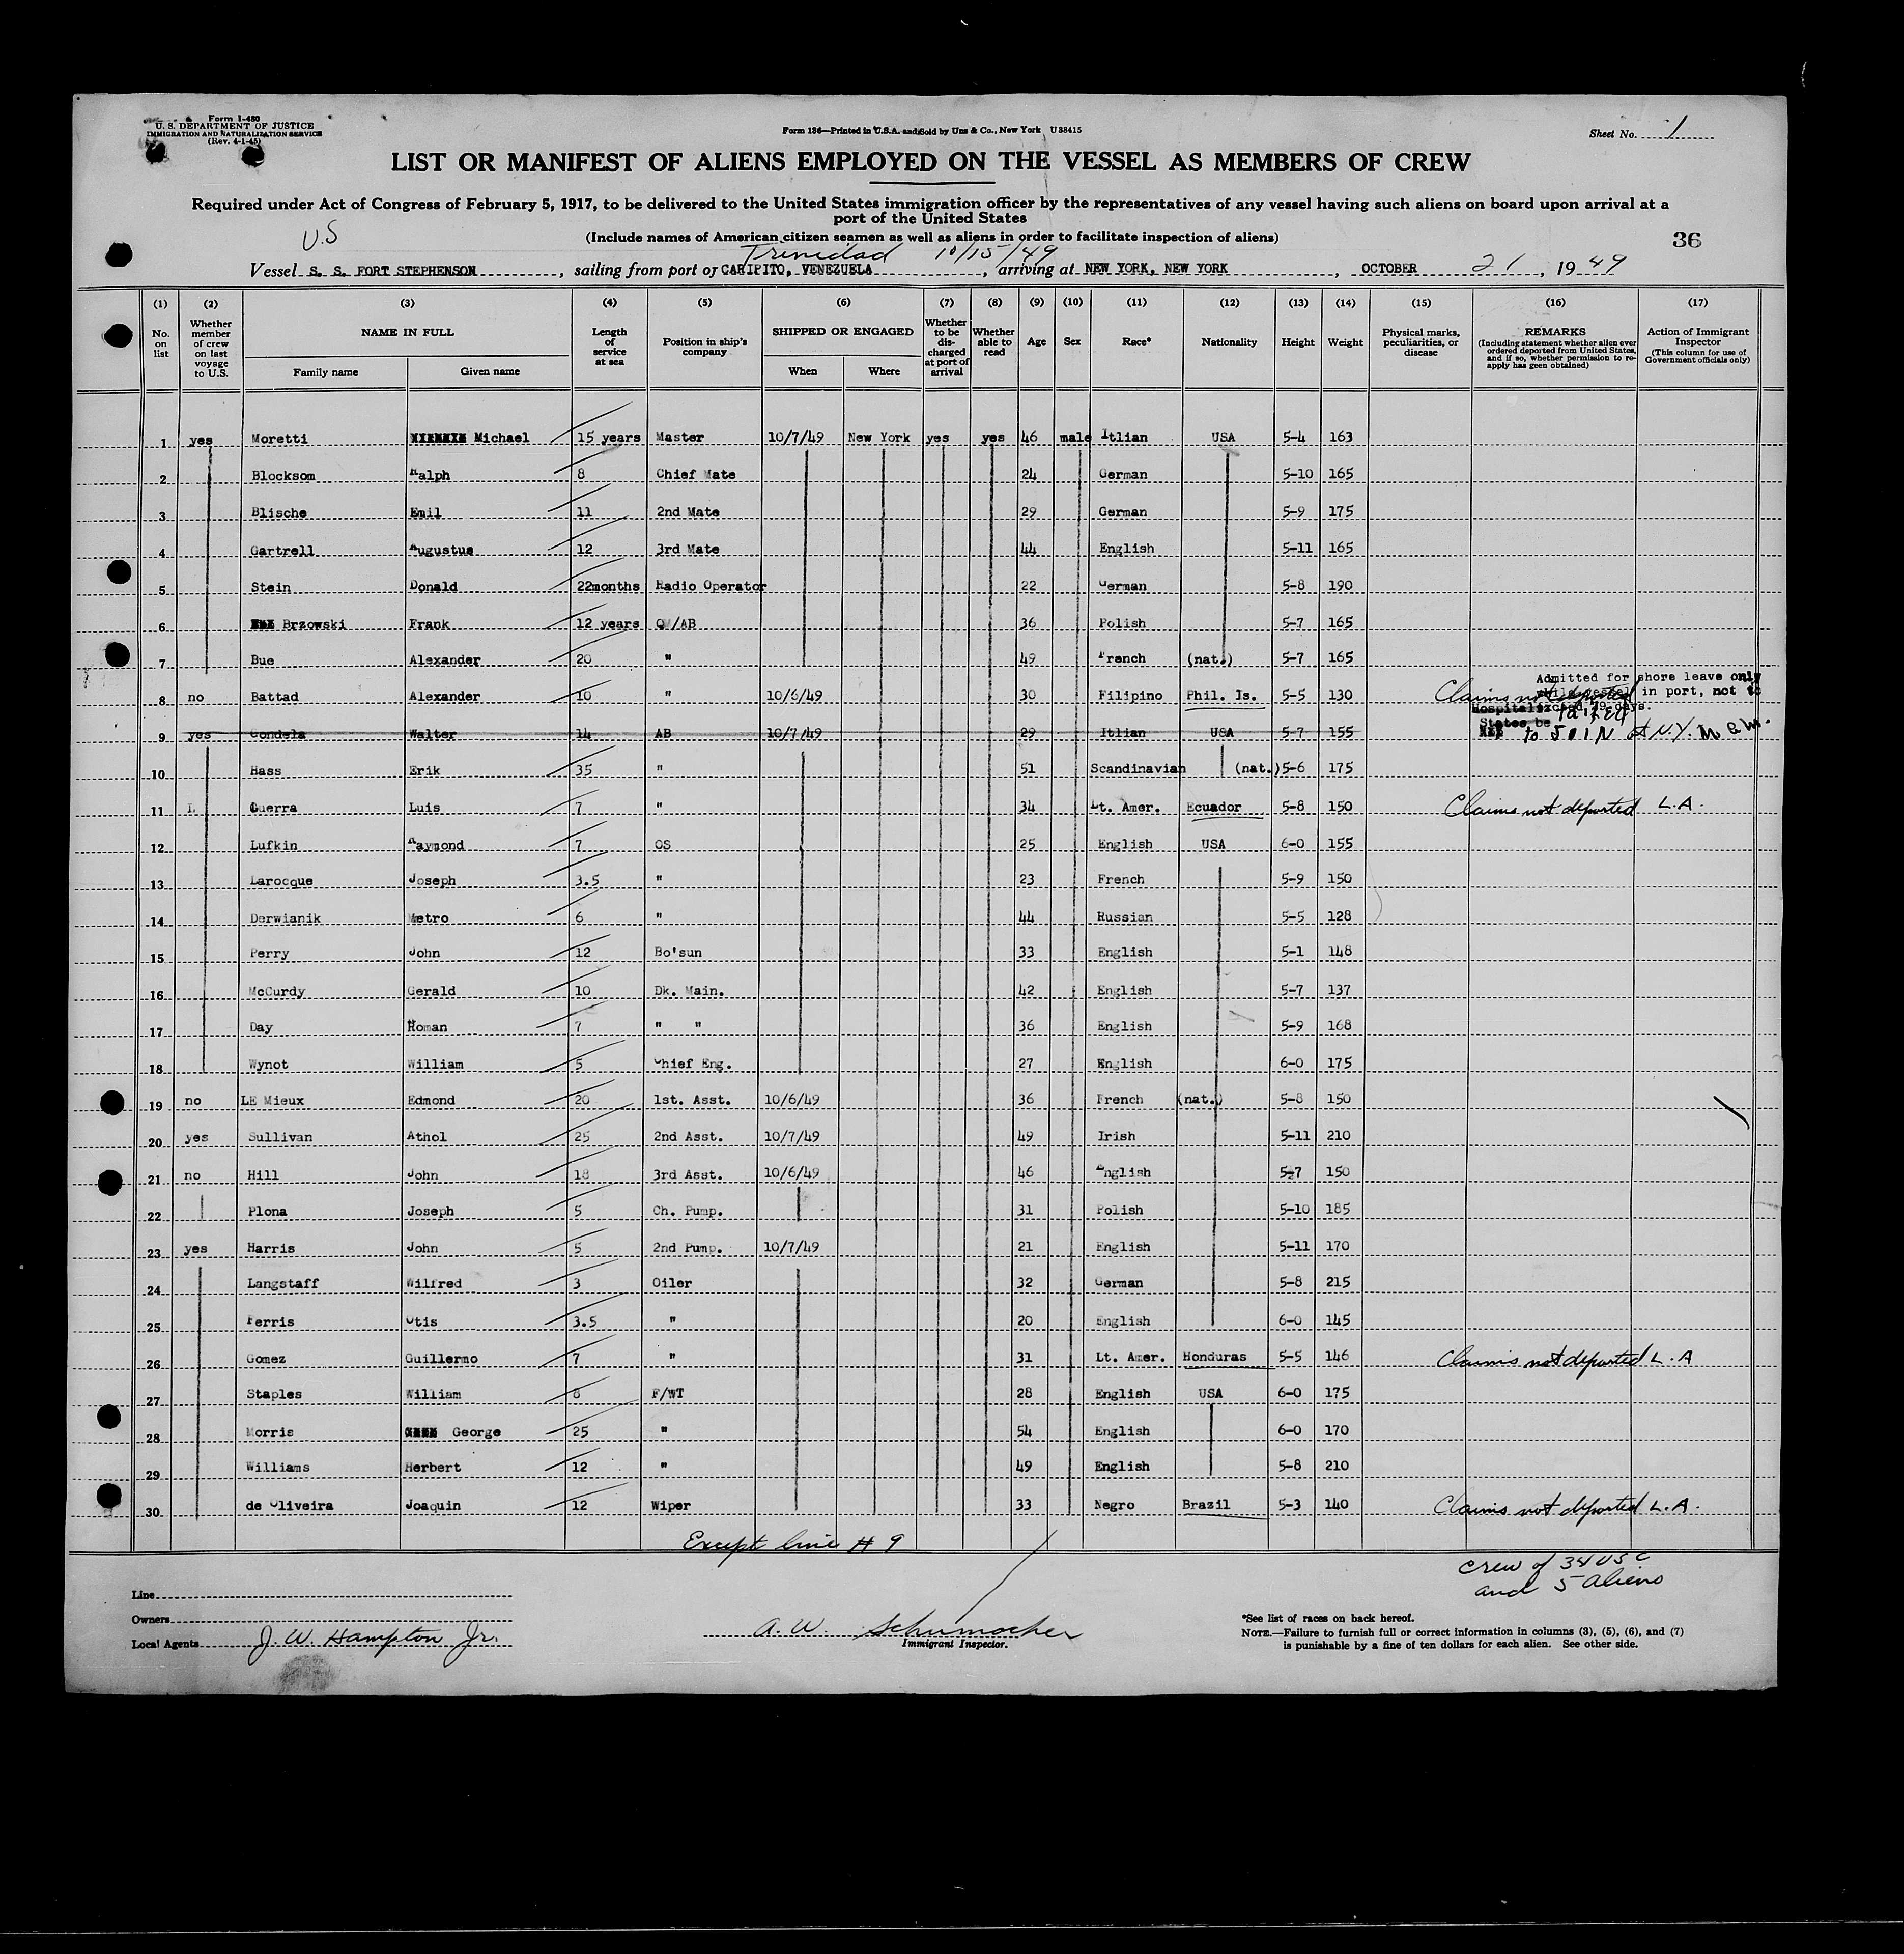 Form I-480
U. S. DEPARTMENT OF JUSTICE
IMMIGRATION AND NATURALIZATION SERVICE
(Rev. 4-1-45)
Form 136—Printed in U.S.A. and Sold by Unz & Co., New York U38415
Sheet No. 1
LIST OR MANIFEST OF ALIENS EMPLOYED ON THE VESSEL AS MEMBERS OF CREW
Required under Act of Congress of February 5, 1917, to be delivered to the United States immigration officer by the representatives of any vessel having such aliens on board upon arrival at a
port of the United States
U.S
(Include names of American citizen seamen as well as aliens in order to facilitate inspection of aliens)
36
Trinidad 10/15/49
Vessel S. S. FORT STEPHENSON, sailing from port of CARIPITO, VENEZUELA, arriving at NEW YORK, NEW YORK, OCTOBER 21, 1949
(1) (2) (3) (4) (5) (6) (7) (8) (9) (10) (11) (12) (13) (14) (15) (16) (17)
No. on list
Whether member of crew on last voyage to U.S.
NAME IN FULL
Family name Given name
Length of service at sea
Position in ship's company
SHIPPED OR ENGAGED
When Where
Whether to be discharged at port of arrival
Whether able to read
Age
Sex
Race*
Nationality
Height
Weight
Physical marks, peculiarities, or disease
REMARKS
(Including statement whether alien ever ordered deported from United States, and if so, whether permission to re-apply has geen obtained)
Action of Immigrant Inspector
(This column for use of Government officials only)
1 yes Moretti Michael 15 years Master 10/7/49 New York yes yes 46 male Itlian USA 5-4 163
2 Blocksom Ralph 8 Chief Mate 24 German 5-10 165
3 Blische Emil 11 2nd Mate 29 German 5-9 175
4 Gartrell Augustus 12 3rd Mate 44 English 5-11 165
5 Stein Donald 22months Radio Operator 22 German 5-8 190
6 Brzowski Frank 12 years QM/AB 36 Polish 5-7 165
7 Bue Alexander 20 " 49 French (nat.) 5-7 165
Admitted for shore leave only
8 no Battad Alexander 10 " 10/6/49 30 Filipino Phil. Is. 5-5 130 Claims not deported while vessel in port, not to
exceed 29 days.
9 yes Gondela Walter 14 AB 10/7/49 29 Itlian USA 5-7 155 Failed to JOIN at N.Y.
10 Hass Erik 35 " 51 Scandinavian (nat.) 5-6 175
11 Guerra Luis 7 " 34 Lt. Amer. Ecuador 5-8 150 Claims not deported L.A.
12 Lufkin Raymond 7 OS 25 English USA 6-0 155
13 Larocque Joseph 3.5 " 23 French 5-9 150
14 Derwianik Metro 6 " 44 Russian 5-5 128
15 Perry John 12 Bo'sun 33 English 5-1 148
16 McCurdy Gerald 10 Dk. Main. 42 English 5-7 137
17 Day Roman 7 " " 36 English 5-9 168
18 Wynot William 5 Chief Eng. 27 English 6-0 175
19 no LE Mieux Edmond 20 1st. Asst. 10/6/49 36 French (nat.) 5-8 150
20 yes Sullivan Athol 25 2nd Asst. 10/7/49 49 Irish 5-11 210
21 no Hill John 18 3rd Asst. 10/6/49 46 English 5-7 150
22 Plona Joseph 5 Ch. Pump. 31 Polish 5-10 185
23 yes Harris John 5 2nd Pump. 10/7/49 21 English 5-11 170
24 Langstaff Wilfred 3 Oiler 32 German 5-8 215
25 Ferris Otis 3.5 " 20 English 6-0 145
26 Gomez Guillermo 7 " 31 Lt. Amer. Honduras 5-5 146 Claims not deported L.A
27 Staples William 8 F/WT 28 English USA 6-0 175
28 Morris George 25 " 54 English 6-0 170
29 Williams Herbert 12 " 49 English 5-8 210
30 de Oliveira Joaquin 12 Wiper 33 Negro Brazil 5-3 140 Claims not deported L.A.
Except line # 9
crew of 34 USC
and 5 aliens
Line
Owners
Local Agents J. W. Hampton Jr.
A. W. Schumacher
Immigrant Inspector.
*See list of races on back hereof.
NOTE.—Failure to furnish full or correct information in columns (3), (5), (6), and (7)
is punishable by a fine of ten dollars for each alien. See other side.